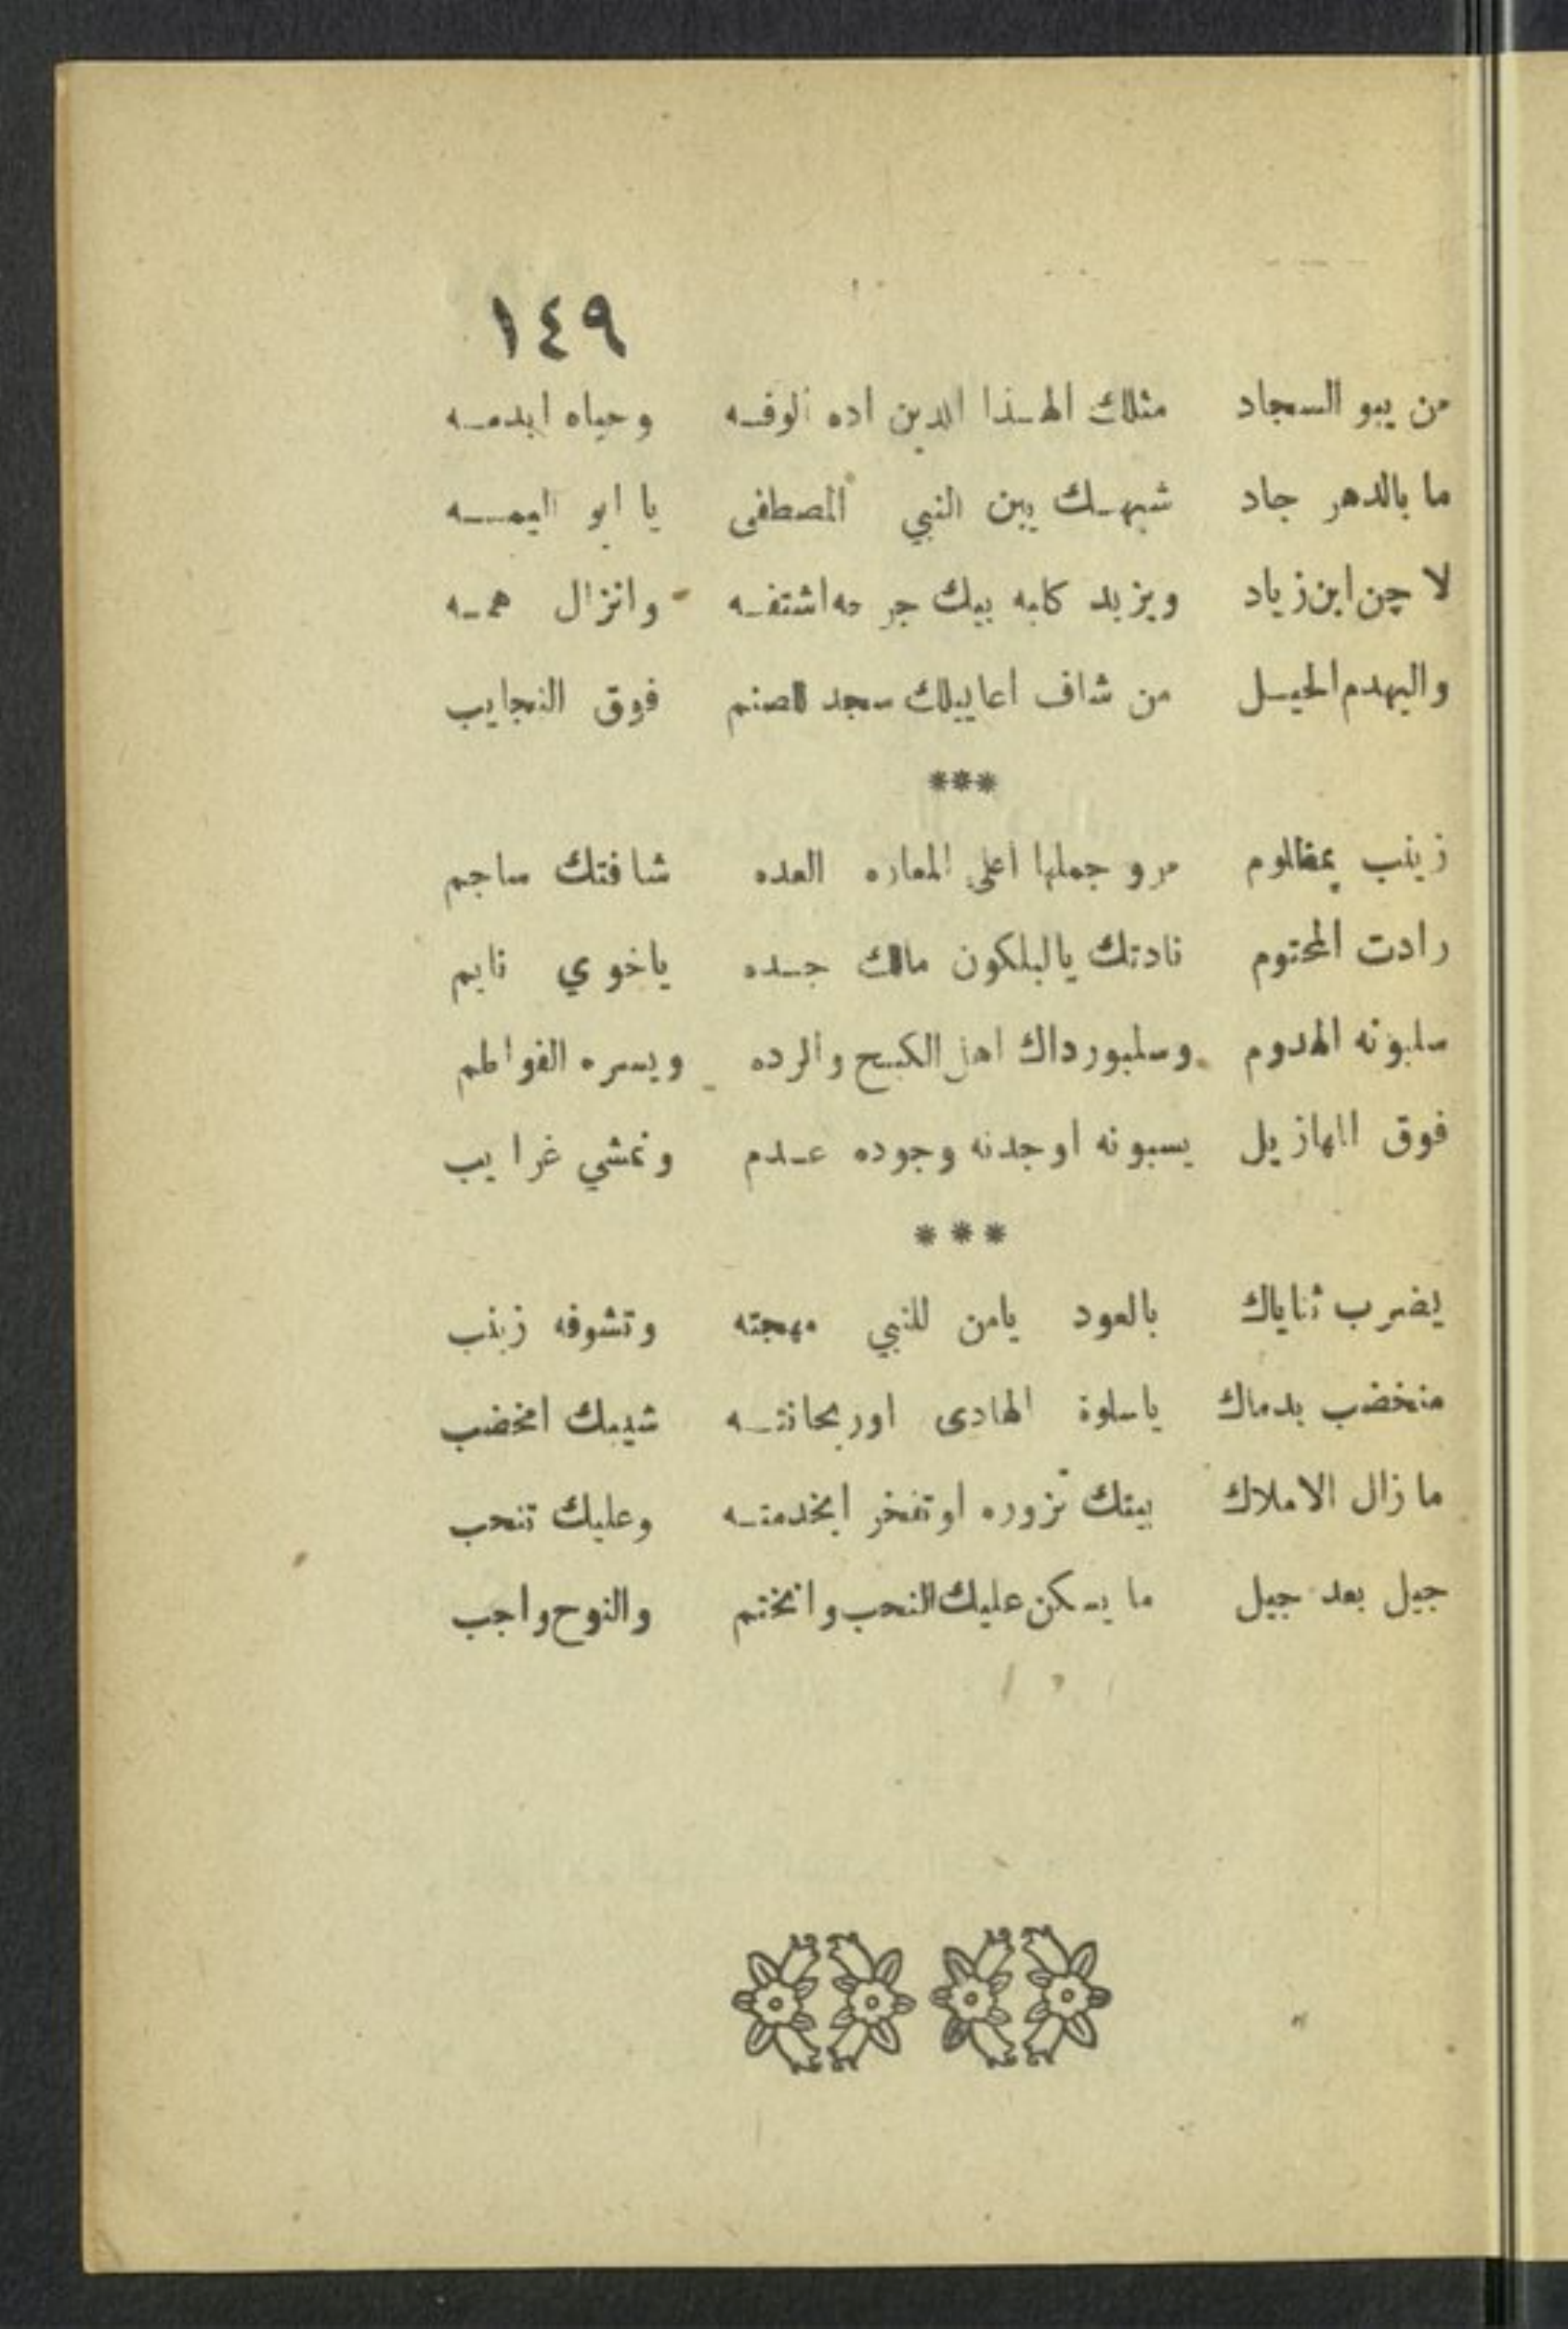 ١٤٩
من يبو السجاد مثلك الهـذا الدين اده الوفـه وحياه ابدمـه
ما بالدهر جاد شبهـك يبن النبي المصطفى يا ابو اليمـه
لا چن ابن زياد ويزيد كابه بيك جرحه اشتفـه وانزال همـه
واليهدم الحيـل من شاف اعاييلك سجد للصنم فوق النجايب
***
زينب يمظلوم مرو جملها اعلى المعاره العده شافتك ساجم
رادت المحتوم نادتك يالبلكون مالك جـده ياخوي نايم
سلبونه الهدوم وسلبو رداك اهل الكبـح والرده ويسره الفواطم
فوق المهازيل يسبونه اوجدنه وجوده عـدم ونمشي غرايب
***
يضرب ثناياك بالعود يامن للنبي مهجته وتشوفه زينب
منخضب بدماك ياسلوة الهادى اوريحانتـه شيبك امخضب
مازال الاملاك بيتك تزوره اوتفخر ابخدمتـه وعليك تنحب
جيل بعد جيل ما يسكن عليك النحب وانختم والنوح واجب